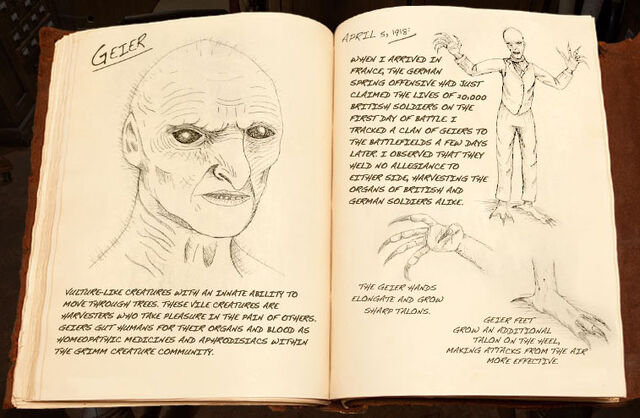 GEIER
VULTURE-LIKE CREATURES WITH AN INNATE ABILITY TO
MOVE THROUGH TREES. THESE VILE CREATURES ARE
HARVESTERS WHO TAKE PLEASURE IN THE PAIN OF OTHERS.
GEIERS GUT HUMANS FOR THEIR ORGANS AND BLOOD AS
HOMEOPATHIC MEDICINES AND APHRODISIACS WITHIN
THE GRIMM CREATURE COMMUNITY.
APRIL 5, 1918:
WHEN I ARRIVED IN
FRANCE, THE GERMAN
SPRING OFFENSIVE HAD JUST
CLAIMED THE LIVES OF 20,000
BRITISH SOLDIERS ON THE
FIRST DAY OF BATTLE. I
TRACKED A CLAN OF GEIERS TO
THE BATTLEFIELDS A FEW DAYS
LATER. I OBSERVED THAT THEY
HELD NO ALLEGIANCE TO
EITHER SIDE, HARVESTING THE
ORGANS OF BRITISH AND
GERMAN SOLDIERS ALIKE.
THE GEIER HANDS
ELONGATE AND GROW
SHARP TALONS.
GEIER FEET
GROW AN ADDITIONAL
TALON ON THE HEEL,
MAKING ATTACKS FROM THE AIR
MORE EFFECTIVE.